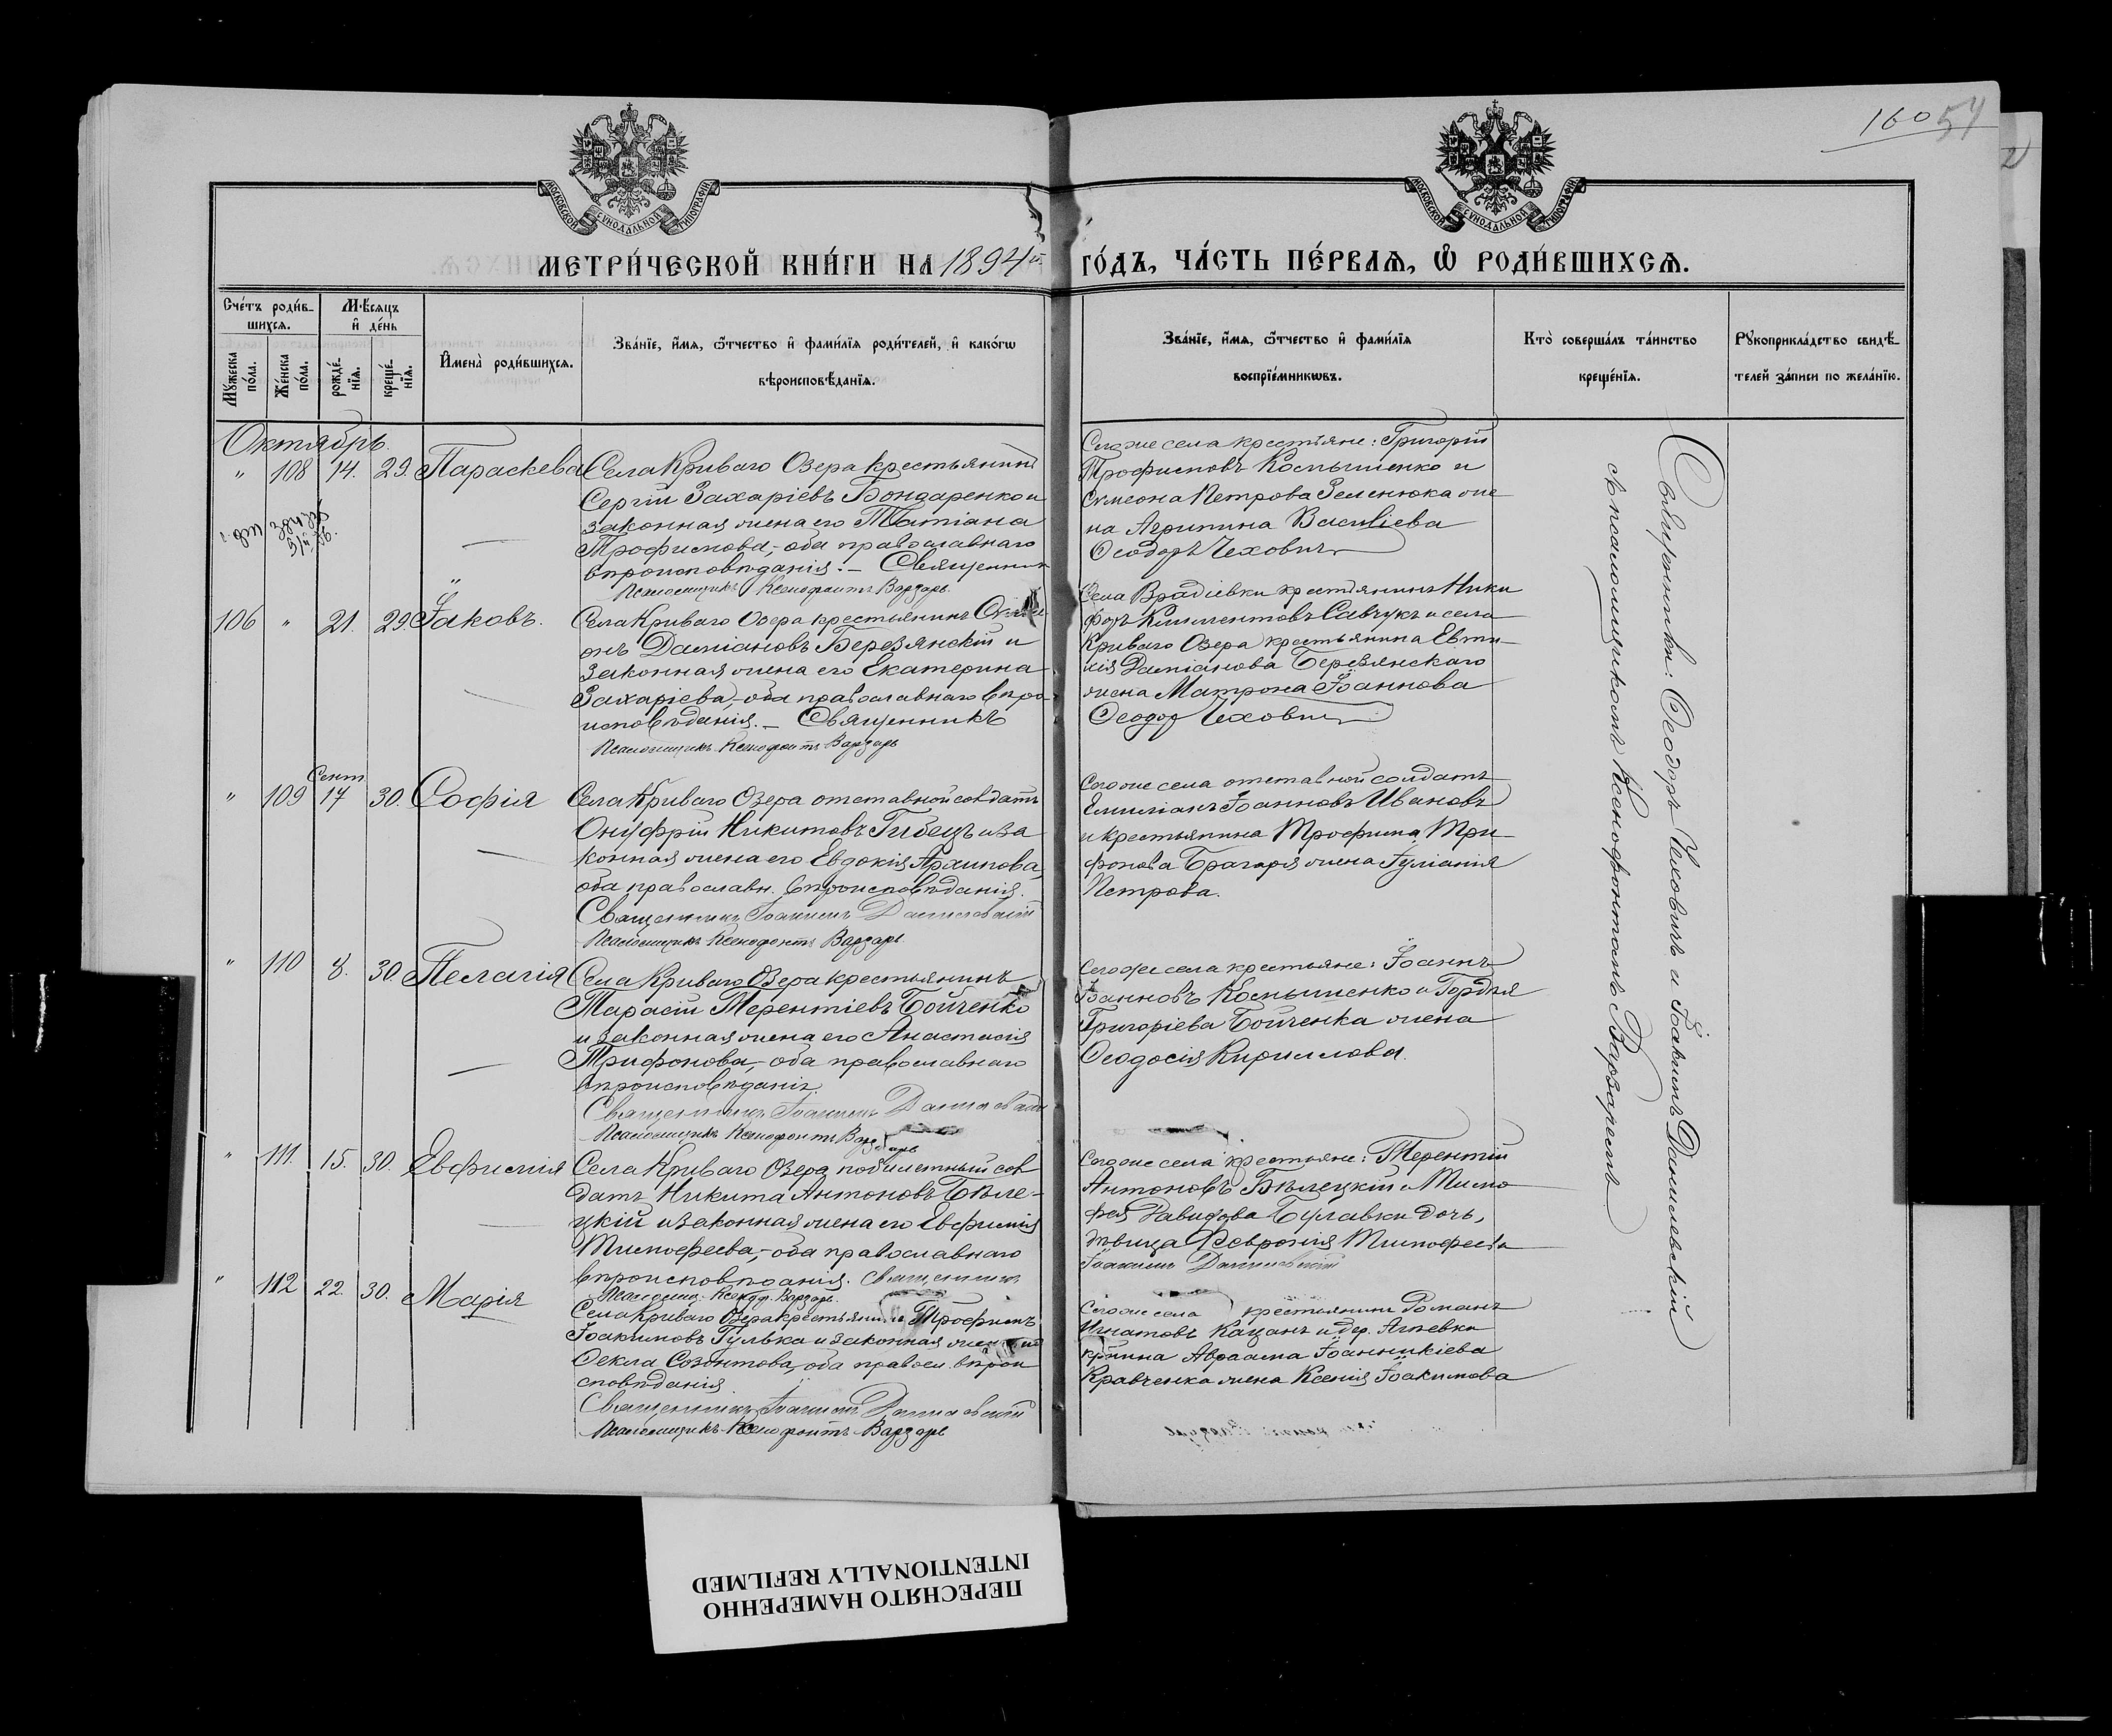 160 54
МОСКОВСКОЙ СУНОДАЛЬНОЙ ТИПОГРАФІИ
МОСКОВСКОЙ СУНОДАЛЬНОЙ ТИПОГРАФІИ
МЕТРИ́ЧЕСКОЙ КНИ́ГИ НА 1894й ГО́ДЪ, ЧА́СТЬ ПЕ́РВАѦ, Ѡ РОДИ́ВШИХСѦ.
Сче́тъ роди́в-
шихсѧ.
Мꙋжеска по́ла.
Же́нска по́ла.
Мѣ́сяцъ
и де́нь
рожде́-
нїѧ.
креще́-
нїѧ.
И҆мена̀ роди́вшихсѧ.
Зва́нїе, и҆́мѧ, ѻ҆́тчество и҆ фами́лїѧ роди́телей, и҆ како́гѡ
вѣроисповѣ́данїѧ.
Зва́нїе, и҆́мѧ, ѻ҆́тчество и҆ фами́лїѧ
воспрїе́мникѡвъ.
Кто̀ соверша́лъ та́инство
креще́нїѧ.
Рꙋкоприкла́дство свидѣ́-
телей за́писи по жела́нїю.
Октябрь.
„ 108 14. 29. Параскева
Села Криваго Озера крестьянинъ
Сергій Захаріевъ Бондаренко и
законная жена его Татіана
Трофимова,- оба православнаго
вѣроисповѣданія. – Священникъ
Псаломщикъ Ксенофонтъ Варзарь
Того же села крестьяне: Григорій
Трофимовъ Космыненко и
Симеона Петрова Зеленюка же
на Агрипина Василіева
Ѳеодоръ Чеховичъ
106 „ 21. 29. Іаковъ.
Села Криваго Озера крестьянинъ
онъ Даміановъ Березянскій и
законная жена его Екатерина
Захаріева,- оба православнаго вѣро-
исповѣданія. – Священникъ
Псаломщикъ Ксенофонтъ Варзарь
Села Врадіевки крестьянинъ Ники
форъ Климентовъ Савчукъ и села
Криваго Озера крестьянина Евти-
хія Даміанова Березянскаго
жена Матрона Іоаннова
Ѳеодоръ Чеховичъ
„ 109 Сент. 17 30. Софія
Села Криваго Озера отставной солдатъ
Онуфрій Никитовъ Гибецъ и за
конная жена его Евдокія Архипова,
оба православн. вѣроисповѣданія.
Священникъ Іоакимъ Данилевскій
Псаломщикъ Ксенофонтъ Варзарь
Того же села отставной солдатъ
Емиліанъ Іоанновъ Ивановъ
и крестьянина Трофима Три-
фонова Брагаря жена Іуліанія
Петрова.
„ 110 8. 30. Пелагія
Села Криваго Озера крестьянинъ
Тарасій Терентіевъ Бойченко
и законная жена его Анастасія
Трифонова,- оба православнаго
вѣроисповѣданія.
Священникъ Іоакимъ Данилевскій
Псаломщикъ Ксенофонтъ Варзарь
Того же села крестьяне: Іоаннъ
Іоанновъ Космыненко и Гордѣя
Григоріева Бойченка жена
Ѳеодосія Кириллова.
„ 111. 15. 30. Евфимія
Села Криваго Озера побилетный сол
датъ Никита Антоновъ Бѣле-
цкій и законная жена его Евфимія
Тимофеева,- оба православнаго
вѣроисповѣданія. Священникъ
Псаломщ. Ксеноф. Варзарь.
Того же села крестьяне: Терентій
Антоновъ Бѣлецкій и Тимо
фея Давидова Булавки дочь,
дѣвица Февронія Тимофеева
Іоакимъ Данилевскій
„ 112 22. 30. Марія
Села Криваго Озера крестьянинъ Трофимъ
Іоакимовъ Гулька и законная жена его
Ѳекла Созонтова, оба правосл. вѣрои
сповѣданія
Священникъ Іоакимъ Данилевскій
Псаломщикъ Ксенофонтъ Варзарь
Того же села крестьянинъ Романъ
Игнатовъ Кацанъ и дер.
крнина Авраама Іоанникіева
Кравченка жена Ксенія Іоакимова
Священники: Ѳеодоръ Чеховичъ и Іоакимъ Данилевскій
съ псаломщикомъ Ксенофонтомъ Варзаремъ
ПЕРЕСНЯТО НАМЕРЕННО
INTENTIONALLY REFILMED